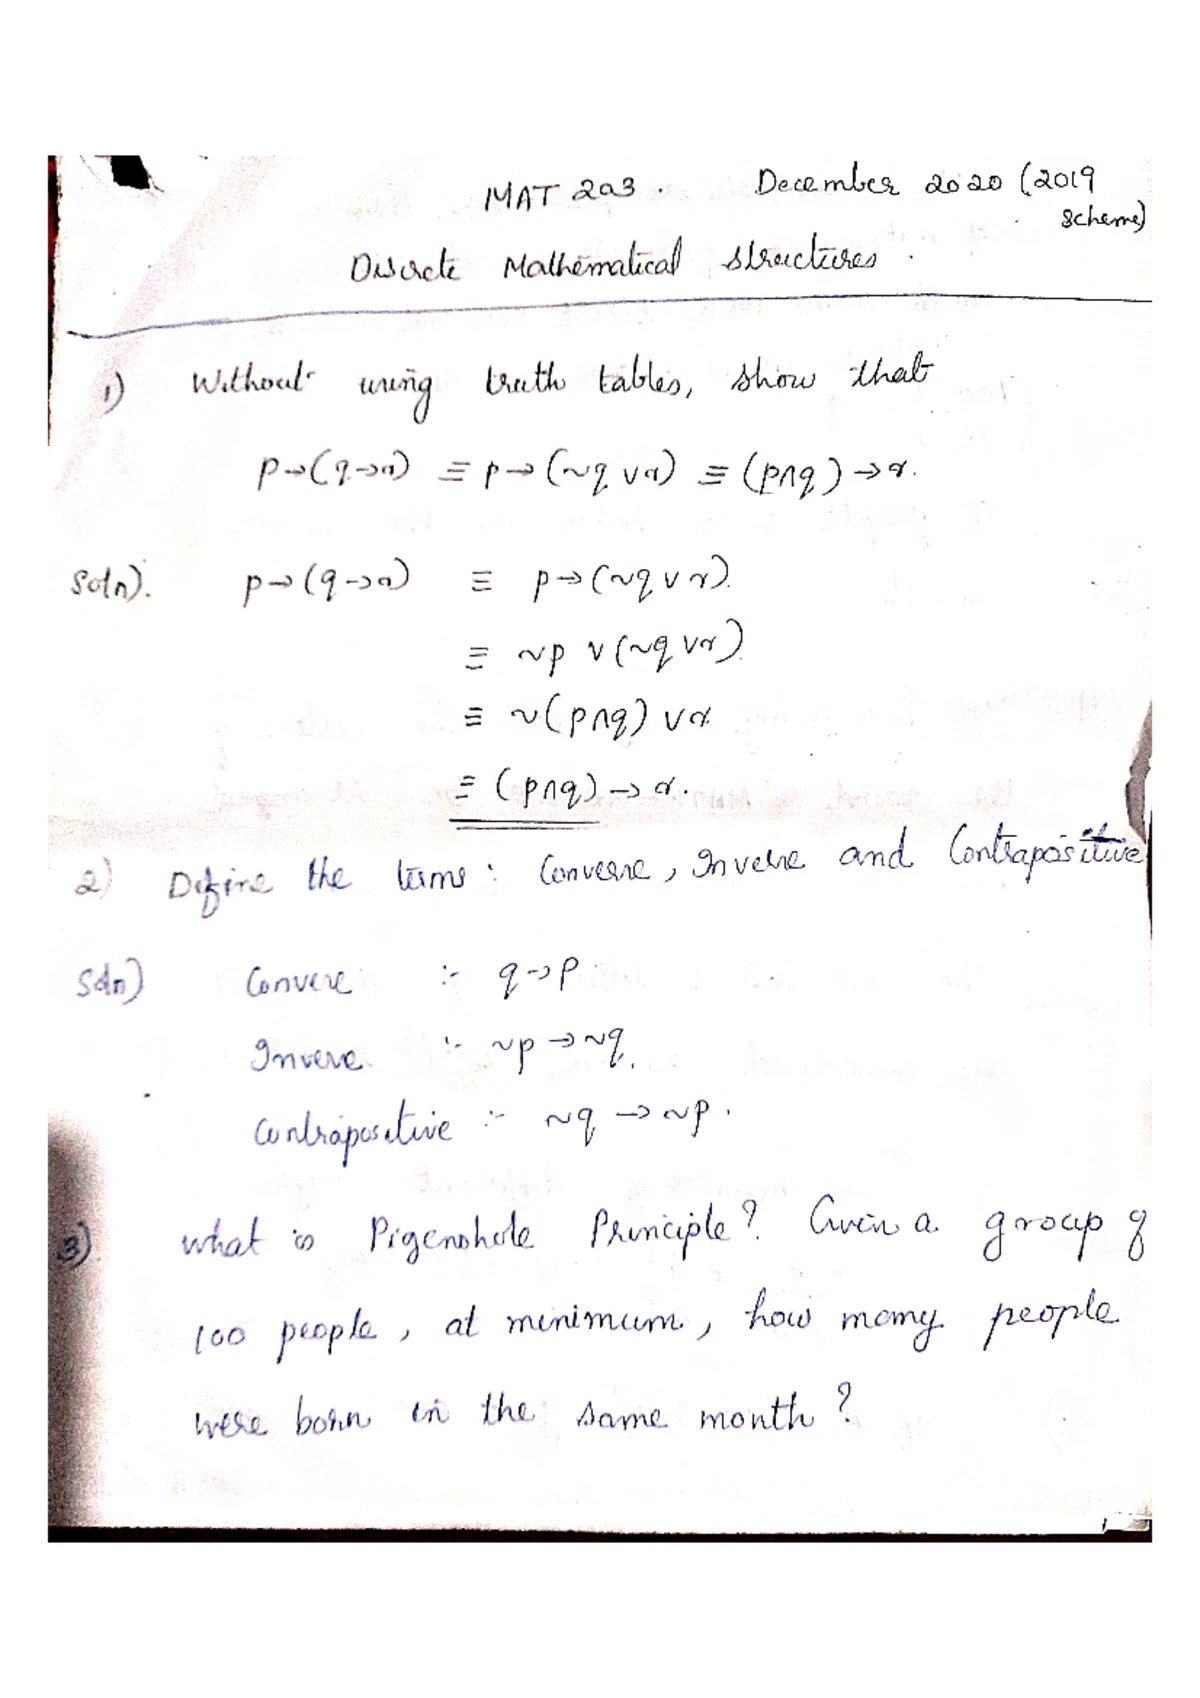 MAT 203. December 2020 (2019
scheme)
Discrete Mathematical structures.
1) Without using truth tables, show that
p→(q→r) ≡ p→(~q ∨ r) ≡ (p∧q)→r.
Soln). p→(q→r) ≡ p→(~q ∨ r).
≡ ~p ∨ (~q ∨ r).
≡ ~(p∧q) ∨ r
≡ (p∧q)→r.
2) Define the terms: Converse, Inverse and Contrapositive
Soln) Converse :- q→p.
Inverse :- ~p→~q.
Contrapositive :- ~q→~p.
3). what is Pigenohole Principle? Given a group of
100 people, at minimum, how many people
were born in the same month?